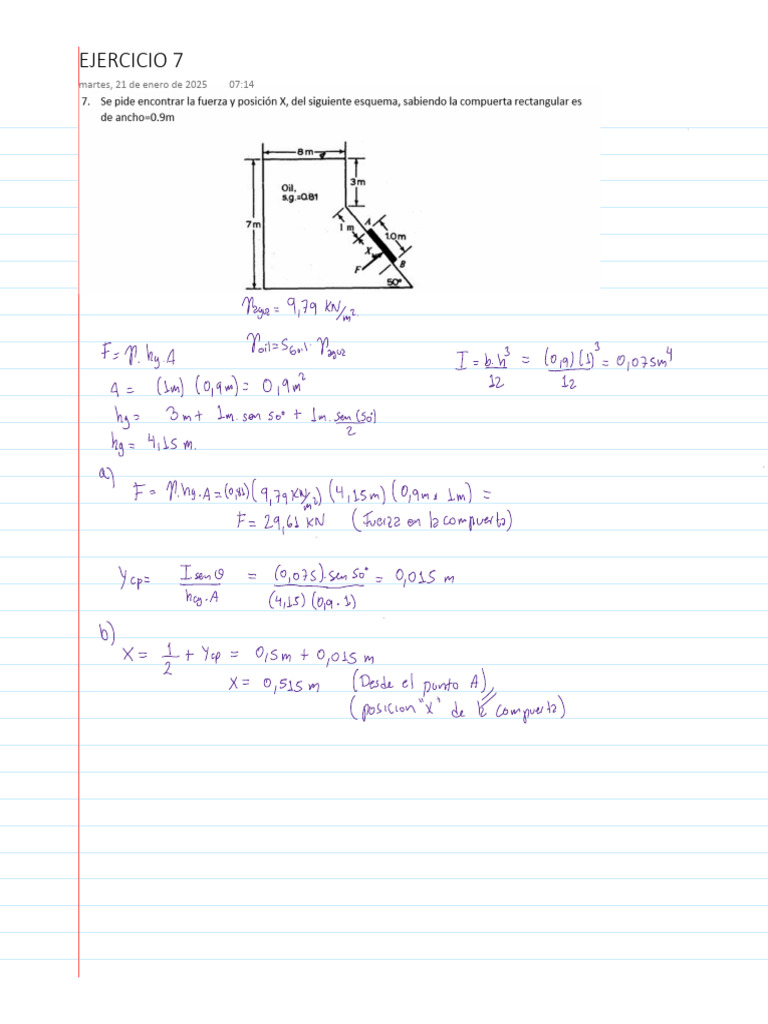 EJERCICIO 7
martes, 21 de enero de 2025 07:14
7. Se pide encontrar la fuerza y posición X, del siguiente esquema, sabiendo la compuerta rectangular es
de ancho=0.9m
8m
Oil,
s.g.=0.81
3m
7m
1 m
A
1.0m
X
F
B
50°
γagua = 9,79 KN/m².
F = γ. hg. A
γoil = SGoil. γagua
I = b.h³/12 = (0,9)(1)³/12 = 0,075m⁴
A = (1m) (0,9m) = 0,9m²
hg = 3m + 1m. sen 50° + 1m. sen(50°)/2
hg = 4,15 m.
a) F = γ.hg.A = (0,81)(9,79 KN/m²)(4,15m)(0,9m x 1m) =
F = 29,61 KN (Fuerza en la compuerta)
Ycp = I senθ/hcg.A = (0,075).sen 50°/(4,15)(0,9.1) = 0,015 m
b) X = 1/2 + Ycp = 0,5m + 0,015 m
X = 0,515 m (Desde el punto A),
(posicion "X" de la compuerta)